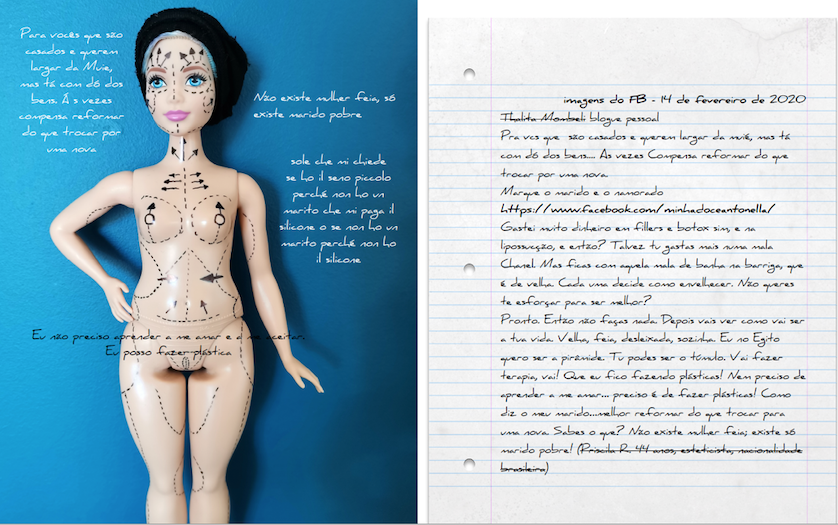 Para vocês que são
casados e querem
largar da Muie,
mas tá com dó dos
bens. Ás vezes
compensa reformar
do que trocar por
uma nova
Não existe mulher feia, só
existe marido pobre
sole che mi chiede
se ho il seno piccolo
perché non ho un
marito che mi paga il
silicone o se non ho un
marito perché non ho
il silicone
Eu não preciso aprender a me amar e a me aceitar.
Eu posso fazer plástica
imagens do FB - 14 de fevereiro de 2020
Thalita Mombeli blogue pessoal
Pra vcs que são casados e querem largar da muié, mas tá
com dó dos bens.... As vezes Compensa reformar do que
trocar por uma nova.
Marque o marido e o namorado
https://www.facebook.com/minhadoceantonella/
Gastei muito dinheiro em fillers e botox sim, e na
lipossucção, e então? Talvez tu gastas mais numa mala
Chanel. Mas ficas com aquela mala de banha na barriga, que
é de velha. Cada uma decide como envelhecer. Não queres
te esforçar para ser melhor?
Pronto. Então não faças nada. Depois vais ver como vai ser
a tua vida. Velha, feia, desleixada, sozinha. Eu no Egito
quero ser a pirâmide. Tu podes ser o túmulo. Vai fazer
terapia, vai! Que eu fico fazendo plásticas! Nem preciso de
aprender a me amar... preciso é de fazer plásticas! Como
diz o meu marido...melhor reformar do que trocar para
uma nova. Sabes o que? Não existe mulher feia; existe só
marido pobre! (Priscila R. 44 anos, esteticista, nacionalidade
brasileira)